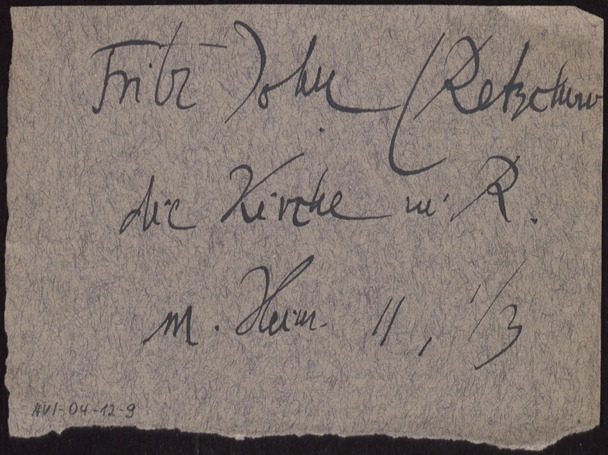 Fritz John (Retzchow
die Kirche in R.
m. Heim. 11, 1/3
AVI-04-12-9